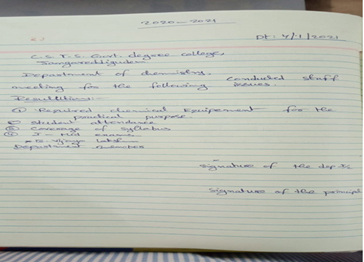 2020-2021
Dt: 4/1/2021
C.S.T.S Govt. degree college,
Jangareddigudem
Department of chemistry, conducted staff
meeting for the following issues.
Resolutions:-
① Required chemical Equipement for the
practical purpose
② Student attendance
③ Coverage of syllabus
④ J- Mid exams
Department
Signature of the
Signature of the